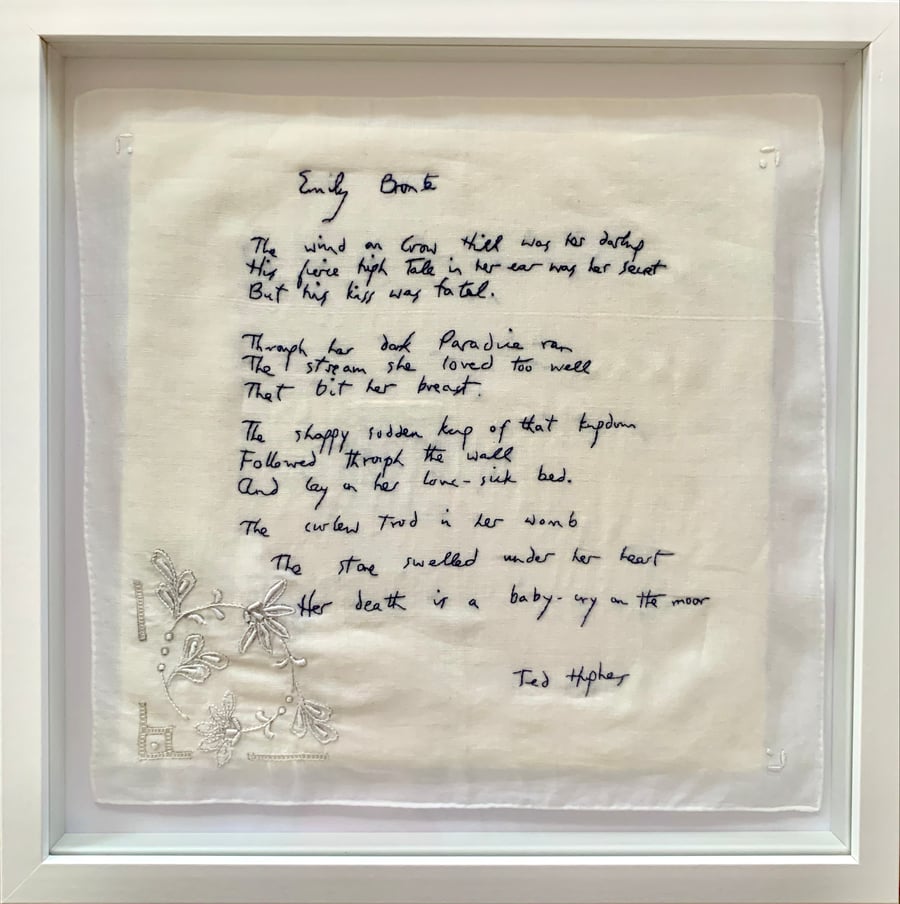 Emily Bronte
The wind on Crow Hill was her darling
His fierce high Tale in her ear was her secret
But his kiss was fatal.
Through her dark Paradise ran
The stream she loved too well
That bit her breast.
The shaggy sodden king of that kingdom
Followed through the wall
And lay on her love-sick bed.
The curlew Trod in her womb
The stone swelled under her heart
Her death is a baby-cry on the moor
Ted Hughes